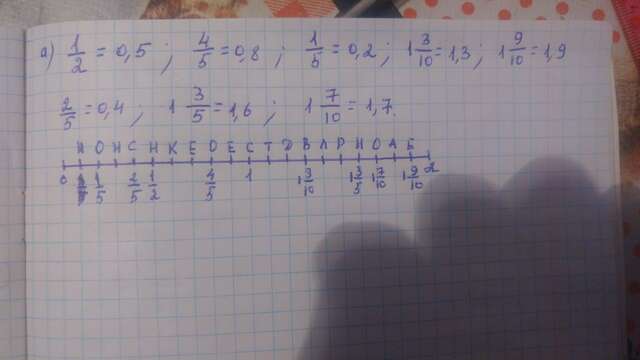 а) 1/2 = 0,5 ; 4/5 = 0,8 ; 1/5 = 0,2 ; 1 3/10 = 1,3 ; 1 9/10 = 1,9
2/5 = 0,4 ; 1 3/5 = 1,6 ; 1 7/10 = 1,7.
Н О Н С Н К Е О Е С Т Д В Р Н О А
0 1/5 2/5 1/2 4/5 1 1 3/10 1 3/5 1 7/10 1 9/10 2